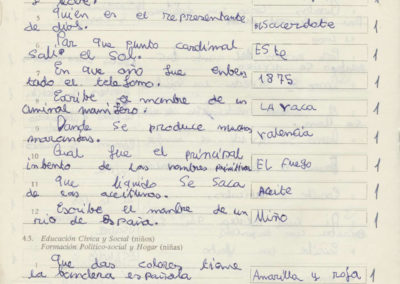 Quien es el representante
de dios.
el sacerdote
1
6 Par que punto cardinal
sali el sol.
ESte
1
7 En que año fue enben
tado el telefomo.
1875
1
8 Escribe el mambre de un
animal mamifero.
LA vaca
1
9 Dande se produce muchas
marcandas.
valencia
1
10 Cual fue el principal
inbento de los nombres primitivos
EL fuego
1
11 Que liquido se saca
de las aceitunas.
Aceite
1
12 Escribe el mambre de un
rio de españa.
Miño
1
4.3. Educación Cívica y Social (niños)
Formación Político-social y Hogar (niñas)
1 Que das colores tieme
la bandera española
Amarilla y roja
1